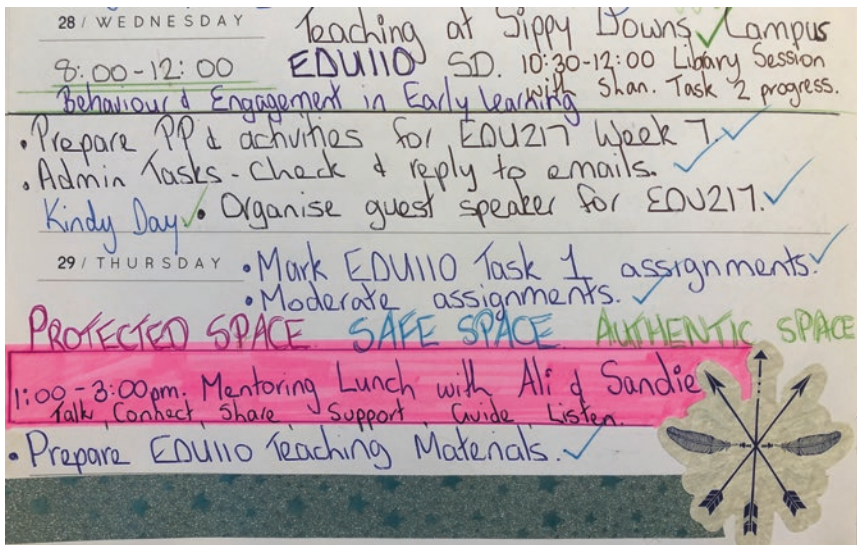 28 / WEDNESDAY Teaching at Sippy Downs Campus
8:00-12:00 EDU110 SD. 10:30-12:00 Library Session
Behaviour & Engagement in Early Learning with Shan. Task 2 progress.
• Prepare PP & activities for EDU217 Week 7.
• Admin Tasks - Check & reply to emails.
Kindy Day • Organise guest speaker for EDU217.
29 / THURSDAY • Mark EDU110 Task 1 assignments.
• Moderate assignments.
PROTECTED SPACE SAFE SPACE AUTHENTIC SPACE
1:00-3:00pm. Mentoring Lunch with Ali & Sandie
Talk, Connect, Share, Support, Guide, Listen.
• Prepare EDU110 Teaching Materials.